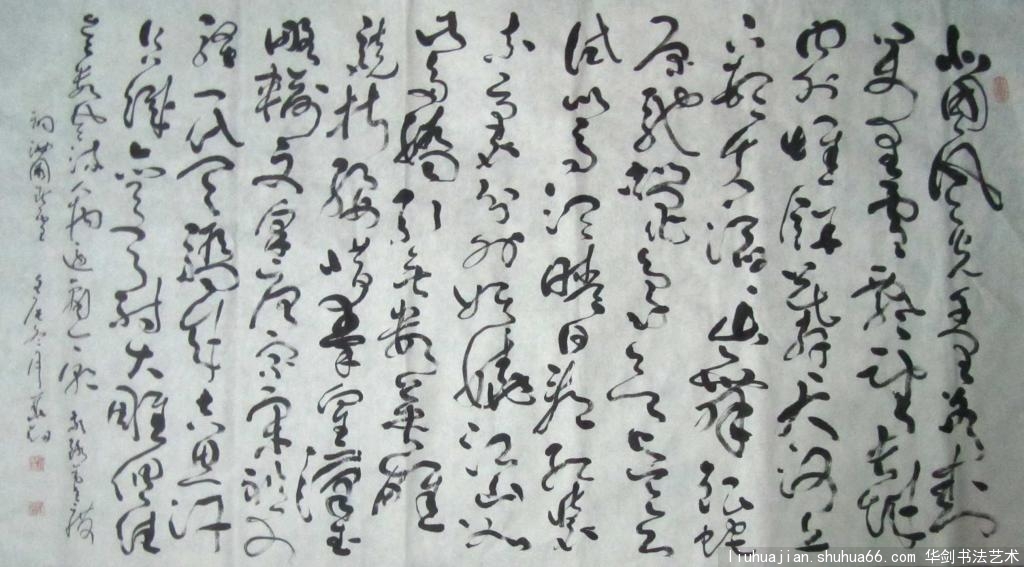 北國風光千里冰封
万里雪飘望长城
内外惟餘莽莽大河上
下顿失滔滔山舞银蛇
原驰蜡象欲与天公
试比高须晴日看红装
素裹分外妖娆江山如
此多娇引无数英雄
竞折腰惜秦皇汉武
略輸文采唐宗宋祖
骚一代天骄成吉思汗
只識弯弓射大雕俱往
矣数风流人物还看今朝
词沁園春雪 壬辰冬月
liuhuajian.shuhua66.com 华剑书法艺术